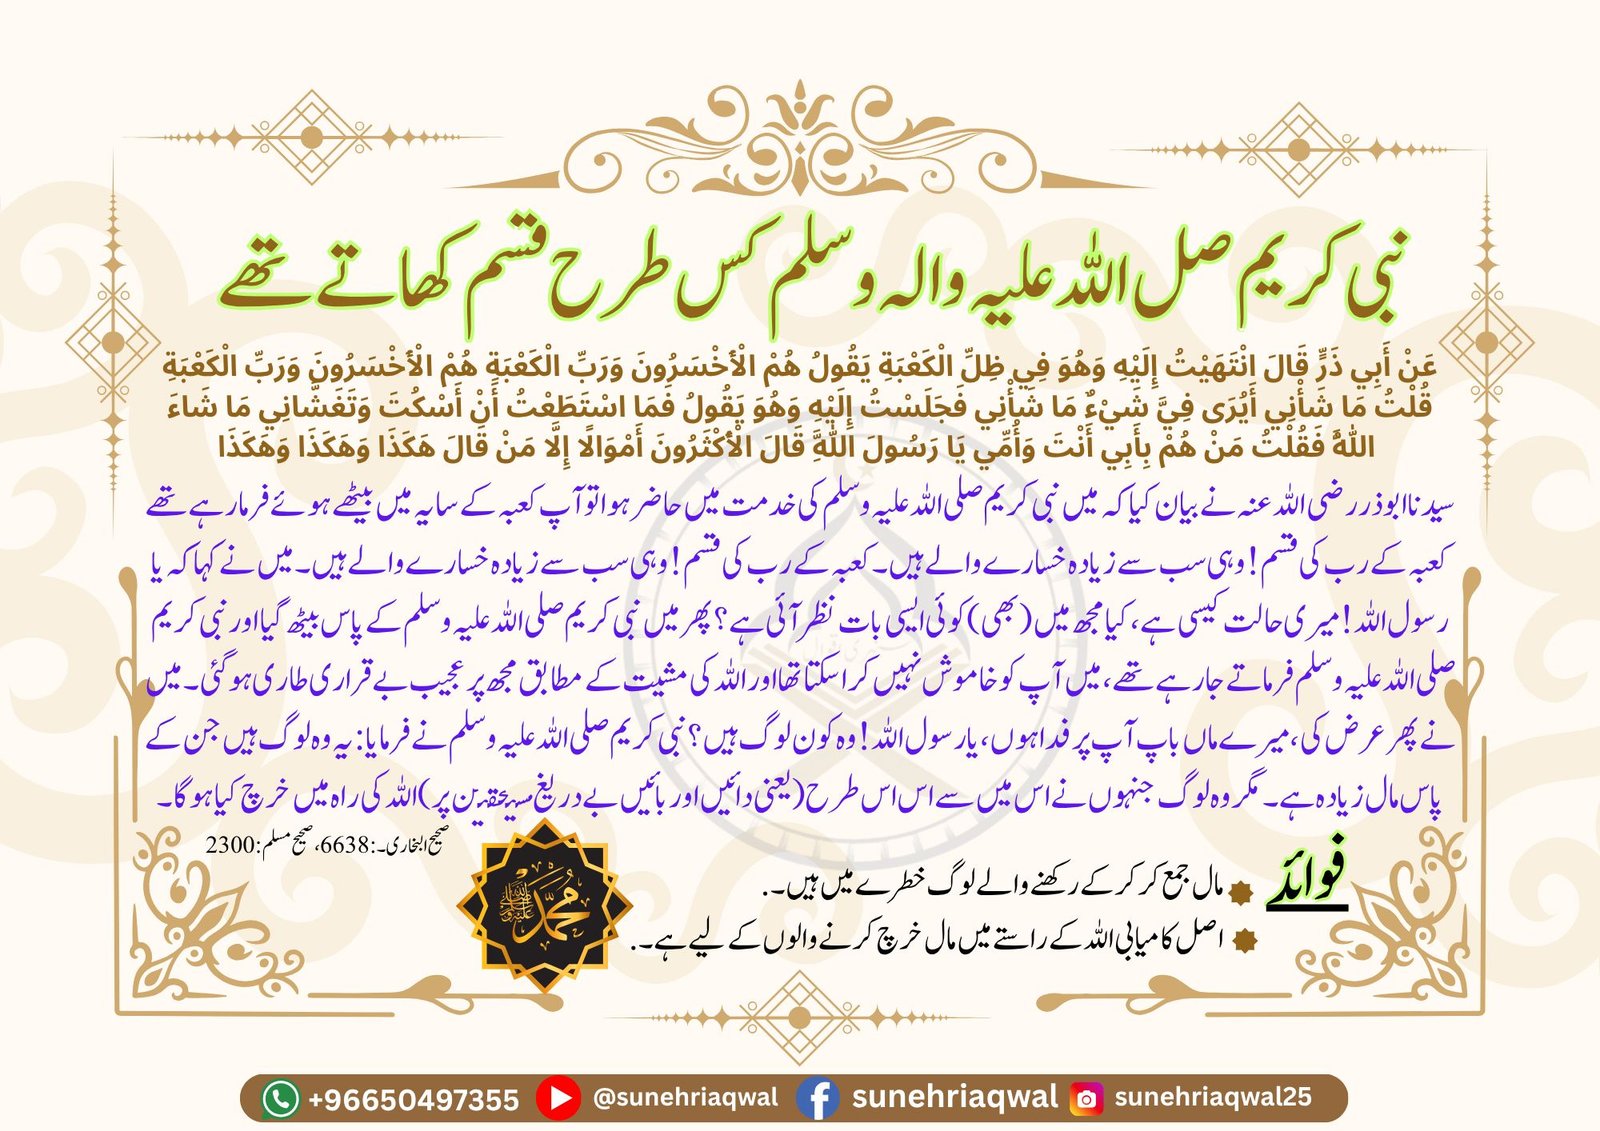 نبی کریم صل اللہ علیہ والہ وسلم کس طرح قسم کھاتے تھے
عَنْ أَبِي ذَرٍّ قَالَ انْتَهَيْتُ إِلَيْهِ وَهُوَ فِي ظِلِّ الْكَعْبَةِ يَقُولُ هُمْ الْأَخْسَرُونَ وَرَبِّ الْكَعْبَةِ هُمْ الْأَخْسَرُونَ وَرَبِّ الْكَعْبَةِ
قُلْتُ مَا شَأْنِي أَيُرَى فِيَّ شَيْءٌ مَا شَأْنِي فَجَلَسْتُ إِلَيْهِ وَهُوَ يَقُولُ فَمَا اسْتَطَعْتُ أَنْ أَسْكُتَ وَتَغَشَّانِي مَا شَاءَ
اللَّهُ فَقُلْتُ مَنْ هُمْ بِأَبِي أَنْتَ وَأُمِّي يَا رَسُولَ اللَّهِ قَالَ الْأَكْثَرُونَ أَمْوَالًا إِلَّا مَنْ قَالَ هَكَذَا وَهَكَذَا وَهَكَذَا
سیدنا ابوذر رضی اللہ عنہ نے بیان کیا کہ میں نبی کریم صلی اللہ علیہ وسلم کی خدمت میں حاضر ہوا تو آپ کعبہ کے سایہ میں بیٹھے ہوئے فرما رہے تھے
کعبہ کے رب کی قسم! وہی سب سے زیادہ خسارے والے ہیں۔ کعبہ کے رب کی قسم! وہی سب سے زیادہ خسارے والے ہیں۔ میں نے کہا کہ یا
رسول اللہ! میری حالت کیسی ہے، کیا مجھ میں (بھی) کوئی ایسی بات نظر آئی ہے؟ پھر میں نبی کریم صلی اللہ علیہ وسلم کے پاس بیٹھ گیا اور نبی کریم
صلی اللہ علیہ وسلم فرماتے جا رہے تھے، میں آپ کو خاموش نہیں کرا سکتا تھا اور اللہ کی مشیت کے مطابق مجھ پر عجیب بے قراری طاری ہو گئی۔ میں
نے پھر عرض کی، میرے ماں باپ آپ پر فدا ہوں، یا رسول اللہ! وہ کون لوگ ہیں؟ نبی کریم صلی اللہ علیہ وسلم نے فرمایا: یہ وہ لوگ ہیں جن کے
پاس مال زیادہ ہے۔ مگر وہ لوگ جنہوں نے اس میں سے اس اس طرح (یعنی دائیں اور بائیں بے دریغ مستحقین پر) اللہ کی راہ میں خرچ کیا ہو گا۔
صحیح البخاری۔:6638، صحیح مسلم:2300
فوائد
مال جمع کر کر کے رکھنے والے لوگ خطرے میں ہیں۔.
اصل کامیابی اللہ کے راستے میں مال خرچ کرنے والوں کے لیے ہے۔.
محمد ﷺ
+96650497355 @sunehriaqwal sunehriaqwal sunehriaqwal25